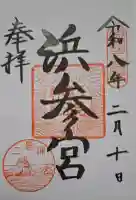 令和八年
二月十日
浜参宮
奉拝